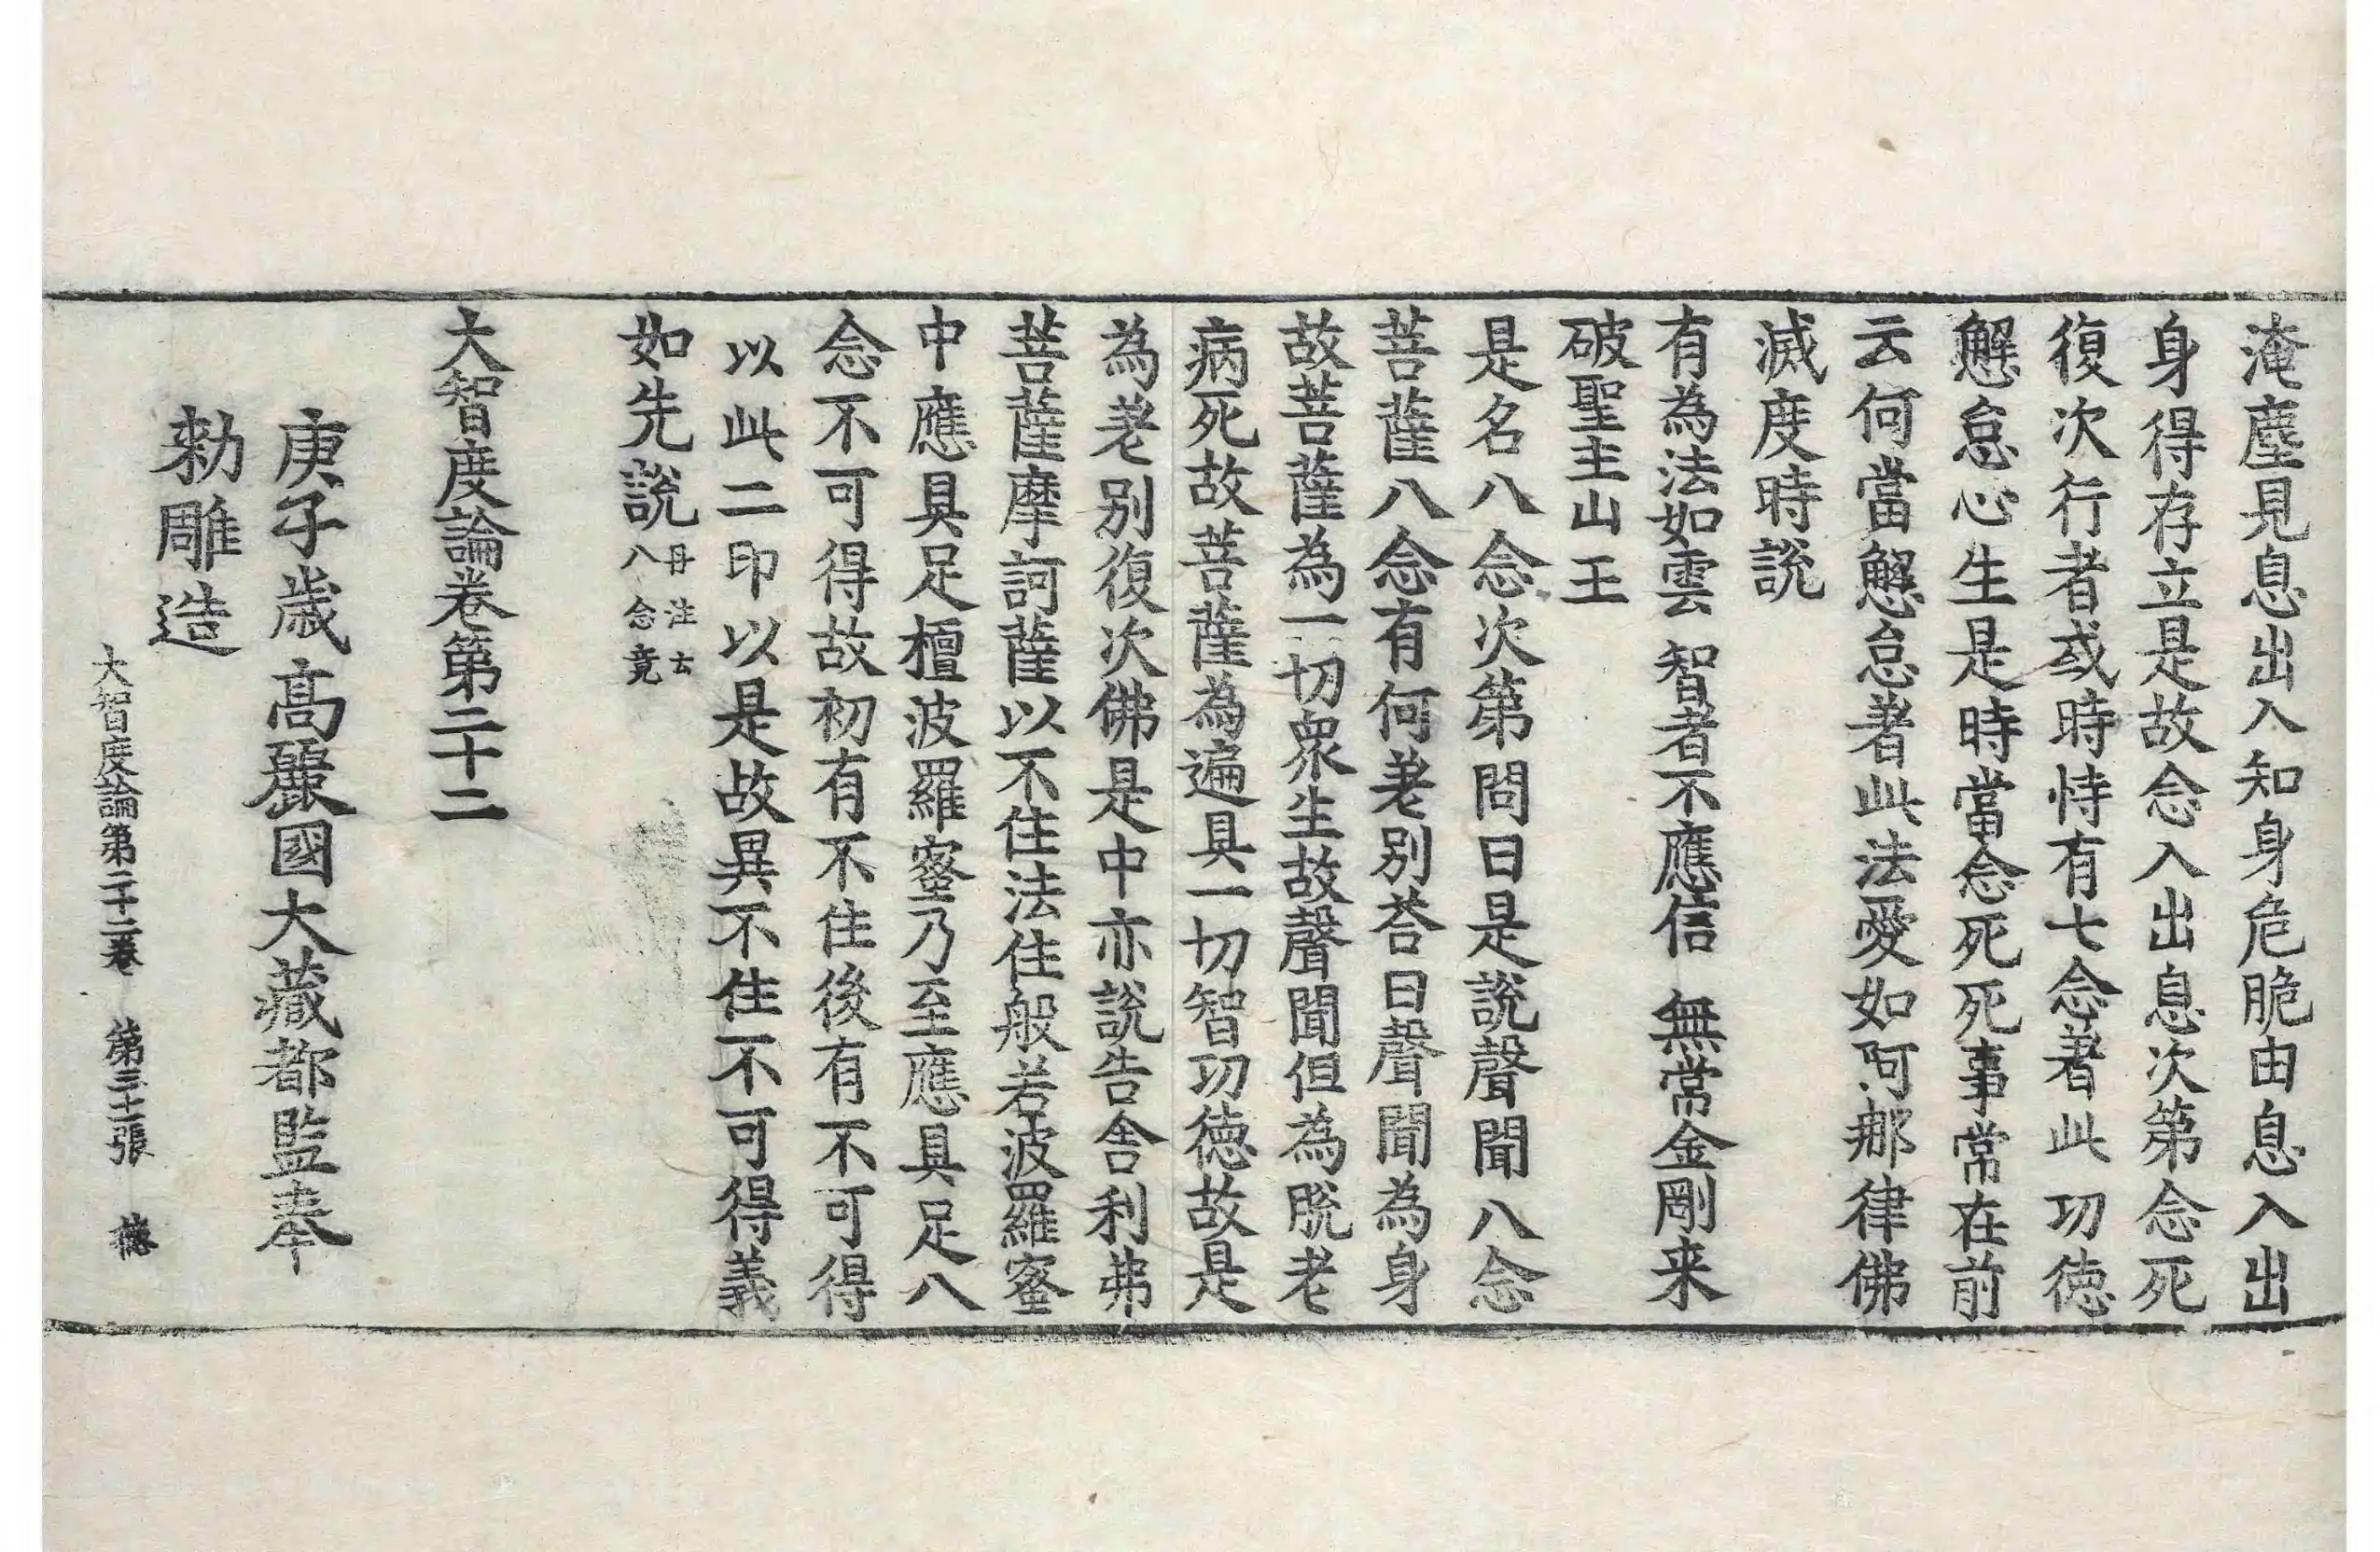 淹塵見息出入知身危脆由息入出
身得存立是故念入出息次第念死
復次行者或時恃有七念著此功德
懈怠心生是時當念死死事常在前
云何當懈怠著此法愛如阿那律佛
滅度時說
有為法如雲　智者不應信　無常金剛来
破聖主山王
是名八念次第問曰是說聲聞八念
菩薩八念有何差別荅曰聲聞為身
故菩薩為一切衆生故聲聞但為脫老
病死故菩薩為遍具一切智功德故是
為差別復次佛是中亦說告舍利弗
菩薩摩訶薩以不住法住般若波羅蜜
中應具足檀波羅蜜乃至應具足八
念不可得故初有不住後有不可得
以此二印以是故異不住不可得義
如先說丹注云八念竟
大智度論卷第二十二
庚子歲高麗國大藏都監奉
勅雕造
大智度論第二十二卷　第三十二張　德